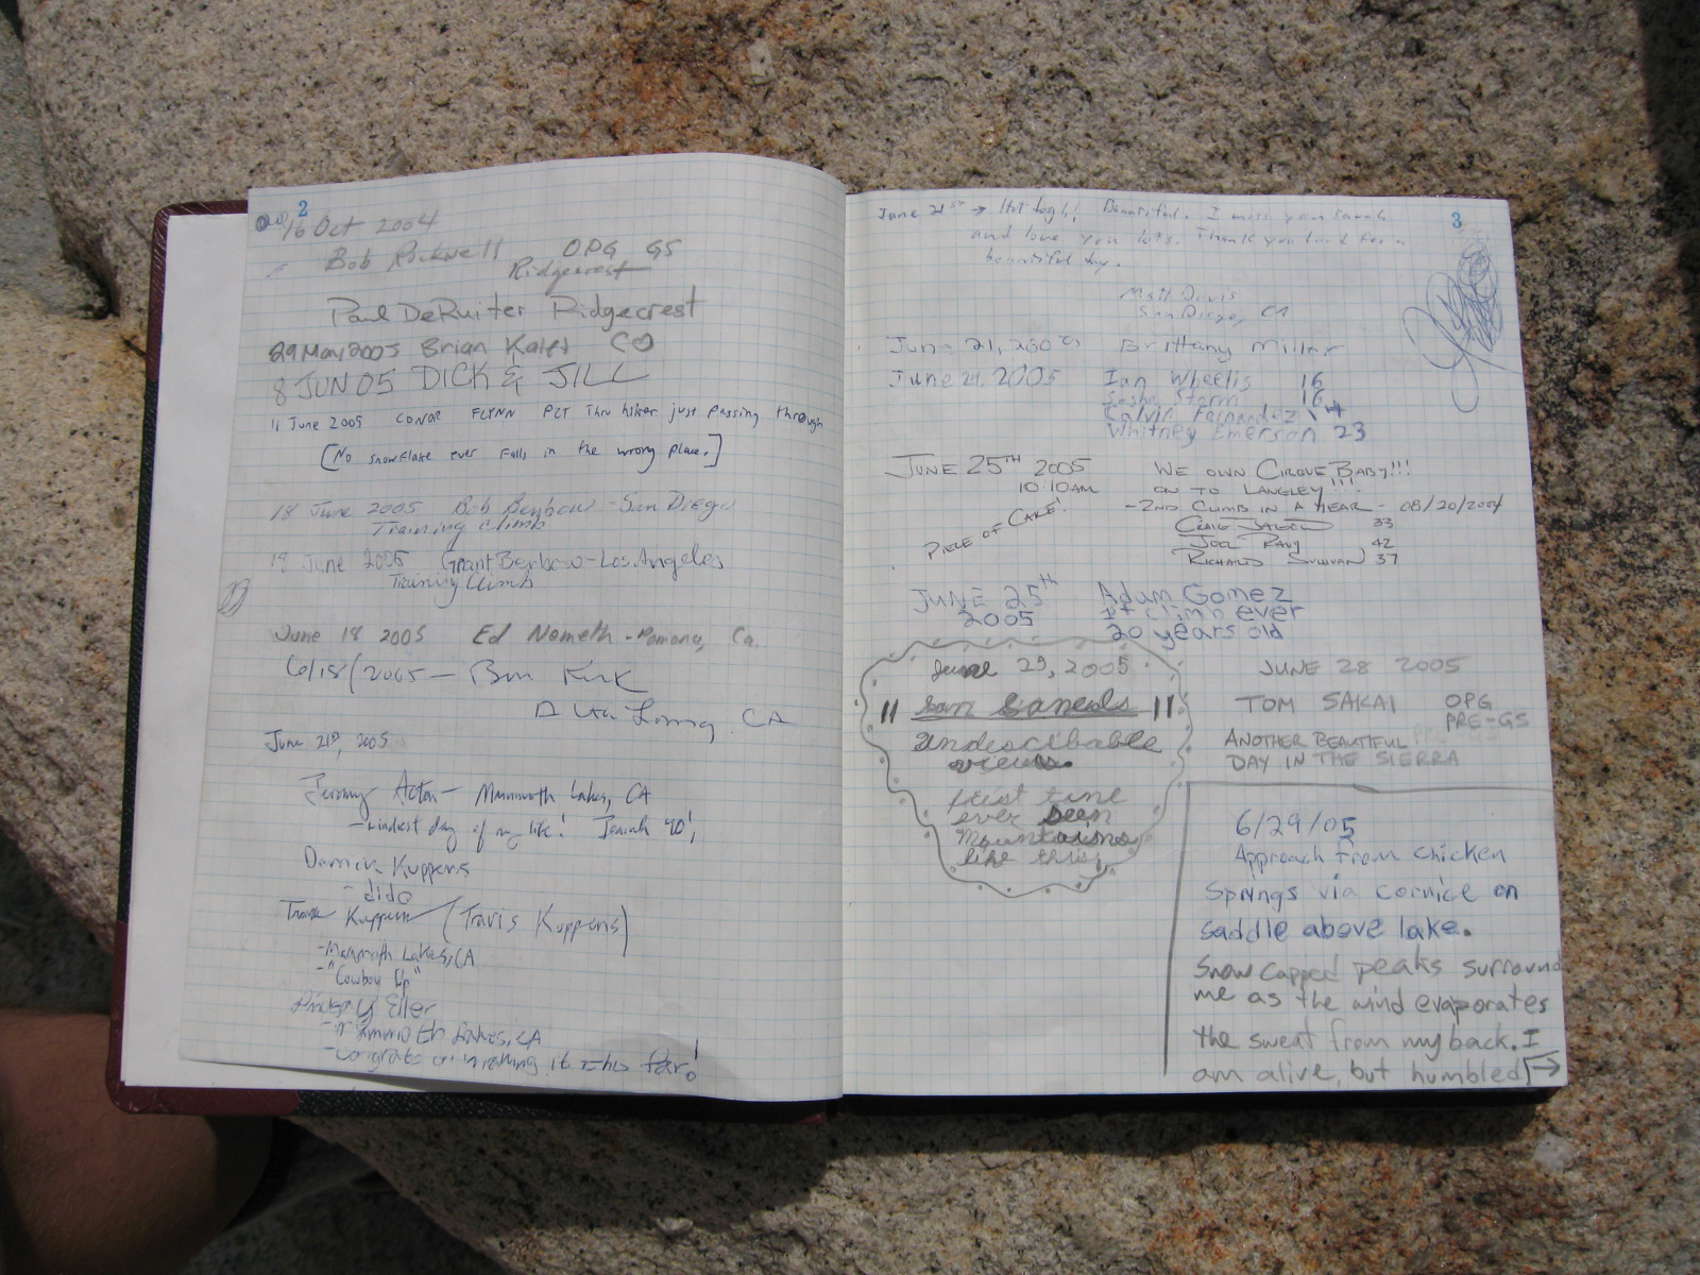 2
16 Oct 2004
Bob Rockwell OPG GS
Ridgecrest
Paul DeRuiter Ridgecrest
29 May 2005 Brian CO
8 JUN 05 DICK & JILL
11 June 2005 CONOR FLYNN PCT Thru hiker just passing through
[No snowflake ever falls in the wrong place.]
18 June 2005 Bob Benbow - San Diego
Training climb
18 June 2005 Grant Benbow - Los Angeles
Training Climb
June 18 2005 Ed Nemeth - Pomona, Ca.
6/18/2005 — Kirk
Alta Loma, CA
June 21st, 2005
Jeremy Acton - Mammoth Lakes, CA
- windest day of my life!
Kuppens
- dido
Kuppens (Travis Kuppens)
- Mammoth Lakes, CA
- "Cowboy Up"
Lindsay Eller
- Mammoth Lakes, CA
- Congrats on making it this far!
3
June 21st → Beautiful. I miss you Sarah
and love you lots. Thank you Lord for a
beautiful day.
Matt Davis
San Diego, CA
June 21, 2005 Brittany Miller
June 24, 2005 Ian Wheelis 16
Sasha Storm 16
Calvin Fernandez 14
Whitney Emerson 23
JUNE 25TH 2005 WE OWN CIRQUE BABY!!!
10:10AM ON TO LANGLEY!!!
PIECE OF CAKE! - 2ND CLIMB IN A YEAR - 08/20/2004
CRAIG 33
JOEL 42
RICHARD SULLIVAN 37
JUNE 25th Adam Gomez
2005 1st climb ever
20 years old
June 29, 2005
Undescibable
views.
first time
ever been
mountains
like this,
JUNE 28 2005
TOM SAKAI OPG
PRE-GS
ANOTHER BEAUTIFUL
DAY IN THE SIERRA
6/29/05
Approach from Chicken
Springs via cornice on
saddle above lake.
Snow capped peaks surround
me as the wind evaporates
the sweat from my back. I
am alive, but humbled →